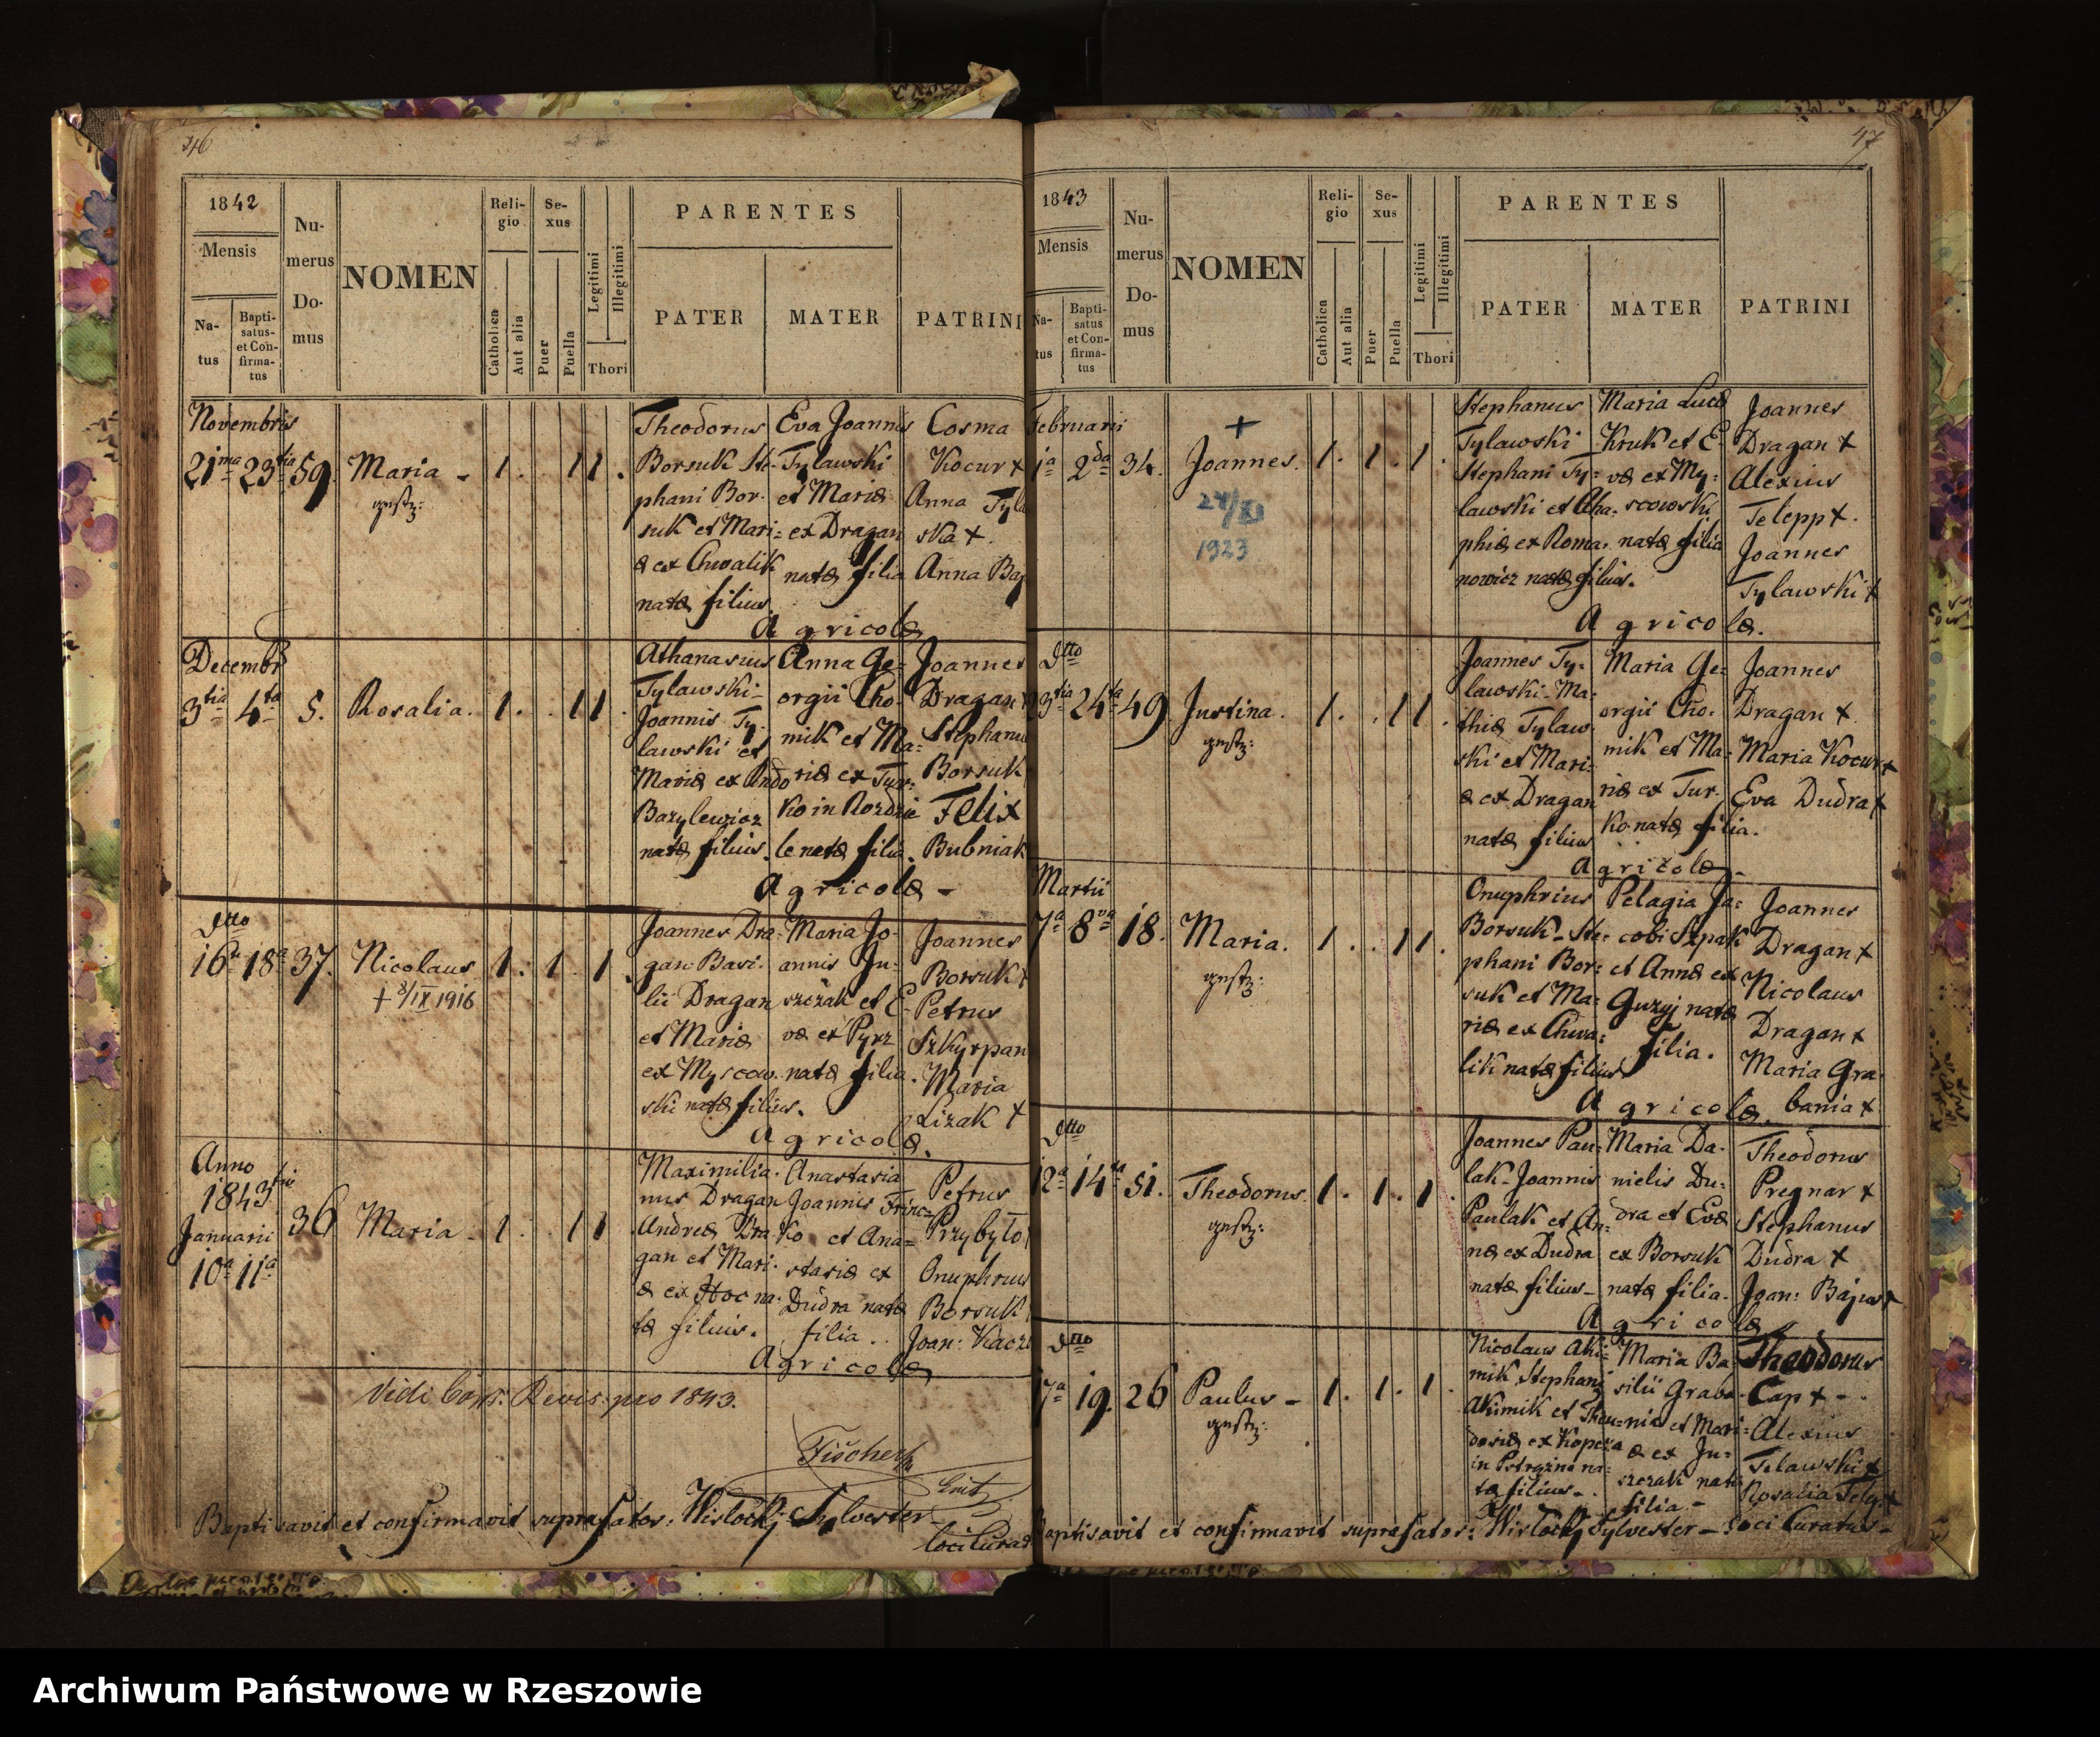 46
1842
Mensis
Na-
tus
Bapti-
satus-
et Con-
firma-
tus
Nu-
merus
Do-
mus
NOMEN
Reli-
gio
Catholica
Aut alia
Se-
xus
Puer
Puella
Legitimi
Illegitimi
Thori
PARENTES
PATER
MATER
PATRINI
Novembris
21ma 23tia 59. Maria -
1. 1 1.
Theodorus
Borsuk Ste-
phani Bor-
suk et Mari-
æ ex Chwalik
natæ filius.
Eva Joannis
Tylawski
et Mariæ
ex Dragan
natæ filia
Cosma
Kocur +
Anna Tyla
ska +.
Anna Baj
Agricolæ
Decembr
3tia 4ta 5. Rosalia.
1. 1 1
Athanasius
Tylawski-
Joannis Ty-
lawski et
Mariæ ex
Bazylewicz
natæ filius.
Anna Ge-
orgii Cho-
mik et Ma-
riæ ex Tur-
ko in Rozdzie
le natæ filia.
Joannes
Dragan
Stephanu
Borsuk
Felix
Bubniak
Agricolæ -
Dtto
16a 18a 37. Nicolaus
+ 8/IX 1916
1. 1. 1.
Joannes Dra-
gan Basi-
lii Dragan
et Mariæ
ex Myscow-
ski natæ filius.
Maria Jo-
annis Ju-
szczak et E-
væ ex Pyrz
natæ filia.
Joannes
Borsuk +
Petrus
Szkyrpan
Maria
Lizak +
Agricolæ.
Anno
1843tii
Januarii
10a 11a
36 Maria -
1. 1 1
Maximilia-
nus Dragan
Andreæ Dra-
gan et Mari-
æ ex Hoc na-
tæ filius.
Anastasia
Joannis Trinc-
ko et Ana-
stasiæ ex
Dudra natæ
filia.
Petrus
Przybyło
Onuphrius
Borsuk
Joan: Kacz
Agricolæ
Vidi Revis: pro 1843.
Fischer
Baptisavit et confirmavit suprafatos: Wisłocky Sylvester
loci Curat
47
1843
Mensis
Na-
tus
Bapti-
satus
et Con-
firma-
tus
Nu-
merus
Do-
mus
NOMEN
Reli-
gio
Catholica
Aut alia
Se-
xus
Puer
Puella
Legitimi
Illegitimi
Thori
PARENTES
PATER
MATER
PATRINI
Februarii
1a 2da 34. Joannes.
+
24/XI
1923
1. 1. 1.
Stephanus
Tylawski
Stephani Ty-
lawski et Aha-
phiæ ex Roma-
nowicz natæ filius.
Maria Lucæ
Kruk et E-
væ ex My-
scowski
natæ filia
Joannes
Dragan +
Alexius
Telepp +.
Joannes
Tylawski +
Agricolæ.
Dtto
23tia 24ta 49 Justina.
1. 1 1.
Joannes Ty-
lawski-Ma-
thiæ Tylaw-
ski et Mari-
æ ex Dragan
natæ filius
Maria Ge-
orgii Cho-
mik et Ma-
riæ ex Tur-
ko natæ filia.
Joannes
Dragan +.
Maria Kocur +
Eva Dudra +
Agricolæ -
Martii
7a 8va 18. Maria.
1. 1 1.
Onuphrius
Borsuk - Ste-
phani Bor-
suk et Ma-
riæ ex Chwa-
lik natæ filius
Pelagia Ja-
cobi Szpak
et Annæ ex
Guzyj natæ
filia.
Joannes
Dragan +
Nicolaus
Dragan +
Maria Gra-
bania +
Agricolæ.
Dtto
12a 14ta 51. Theodorus.
1. 1. 1.
Joannes Pau-
lak-Joannis
Paulak et An-
næ ex Dudra
natæ filius-
Maria Da-
nielis Du-
dra et Evæ
ex Borsuk
natæ filia.
Theodorus
Pregnar +
Stephanus
Dudra +
Joan: Bajus +
Agricolæ
Dtto
17a 19. 26 Paulus -
1. 1. 1.
Nicolaus Aki-
mik Stephani
Akimik et Theo-
dosiæ ex Kopcza
in na-
tæ filius-.
Maria Ba-
silii Graba-
niæ et Mari-
æ ex Ju-
szczak natæ
filia-
Theodorus
Cap + -
Alexius
Telawski +
Rosalia Tely +
Baptisavit et confirmavit suprafatos: Wisłocky Sylvester - Loci Curatus -
Archiwum Państwowe w Rzeszowie